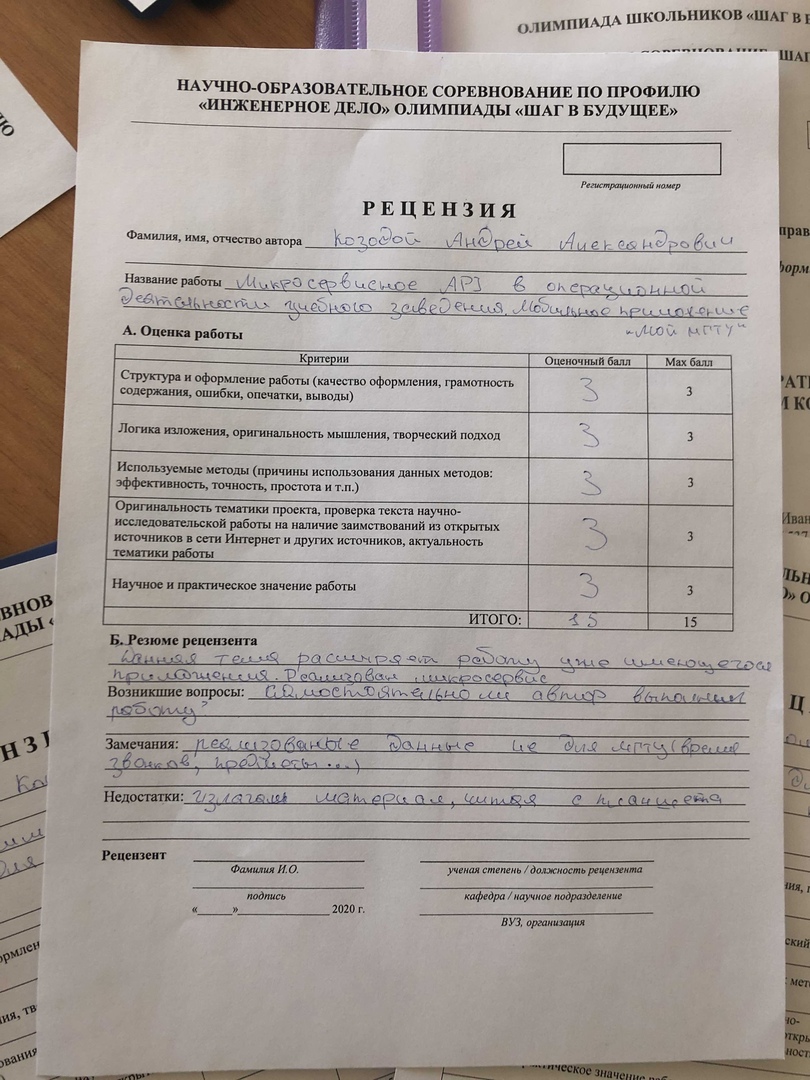 ОЛИМПИАДА ШКОЛЬНИКОВ «ШАГ В
НАУЧНО-ОБРАЗОВАТЕЛЬНОЕ СОРЕВНОВАНИЕ ПО ПРОФИЛЮ
«ИНЖЕНЕРНОЕ ДЕЛО» ОЛИМПИАДЫ «ШАГ В БУДУЩЕЕ»
Регистрационный номер
РЕЦЕНЗИЯ
Фамилия, имя, отчество автора Козодой Андрей Александрович
Название работы Микросервисное API в операционной
деятельности учебного заведения. Мобильное приложение
"Мой МГТУ"
А. Оценка работы
Критерии Оценочный балл Max балл
Структура и оформление работы (качество оформления, грамотность
содержания, ошибки, опечатки, выводы) 3 3
Логика изложения, оригинальность мышления, творческий подход 3 3
Используемые методы (причины использования данных методов:
эффективность, точность, простота и т.п.) 3 3
Оригинальность тематики проекта, проверка текста научно-
исследовательской работы на наличие заимствований из открытых
источников в сети Интернет и других источников, актуальность
тематики работы 3 3
Научное и практическое значение работы 3 3
ИТОГО: 15 15
Б. Резюме рецензента
Данная тема расширяет работу уже имеющегося
приложения. Реализован микросервис
Возникшие вопросы: Самостоятельно ли автор выполнил
работу?
Замечания: реализованные данные не для МГТУ (время
звонков, предметы...)
Недостатки: Излагал материал, читая с планшета
Рецензент
Фамилия И.О. ученая степень / должность рецензента
подпись кафедра / научное подразделение
«____»____ 2020 г.
ВУЗ, организация